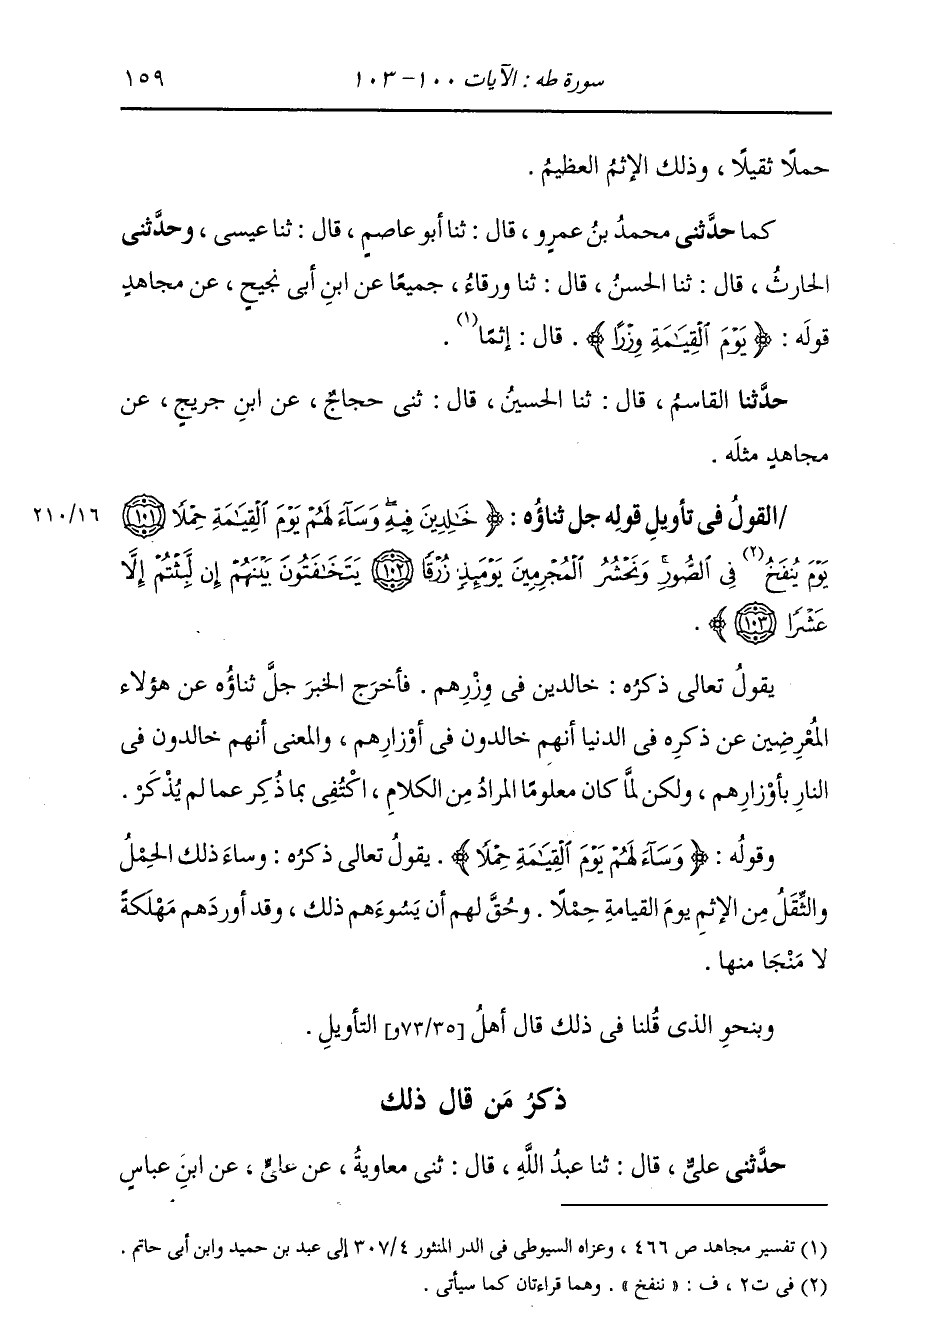 سورة طه : الآيات ١٠٠- ١٠٣ ١٥٩
حملًا ثقيلًا ، وذلك الإثمُ العظيمُ .
كما حدَّثنى محمدُ بنُ عمرٍو ، قال : ثنا أبو عاصمٍ ، قال : ثنا عيسى ، وحدَّثنى
الحارثُ ، قال : ثنا الحسنُ ، قال : ثنا ورقاءُ ، جميعًا عن ابنِ أبى نجيحٍ ، عن مجاهدٍ
قولَه : ﴿ يَوْمَ ٱلْقِيَـٰمَةِ وِزْرًا ﴾ . قال : إثمًا(١) .
حدَّثنا القاسمُ ، قال : ثنا الحسينُ ، قال : ثنى حجاجٌ ، عن ابنِ جريجٍ ، عن
مجاهدٍ مثلَه .
/القولُ فى تأويلِ قولِه جل ثناؤُه : ﴿ خَـٰلِدِينَ فِيهِ ۖ وَسَآءَ لَهُمْ يَوْمَ ٱلْقِيَـٰمَةِ حِمْلًا ١٠١ ٢١٠/١٦
يَوْمَ يُنفَخُ(٢) فِى ٱلصُّورِ ۚ وَنَحْشُرُ ٱلْمُجْرِمِينَ يَوْمَئِذٍ زُرْقًا ١٠٢ يَتَخَـٰفَتُونَ بَيْنَهُمْ إِن لَّبِثْتُمْ إِلَّا
عَشْرًا ١٠٣ ﴾ .
يقولُ تعالى ذكرُه : خالدين فى وِزْرِهم . فأخرَج الخبرَ جلَّ ثناؤُه عن هؤلاء
المُعْرِضِين عن ذكرِه فى الدنيا أنهم خالدون فى أوْزارِهم ، والمعنى أنهم خالدون فى
النارِ بأوْزارِهم ، ولكن لمَّا كان معلومًا المرادُ مِن الكلامِ ، اكْتُفِى بما ذُكِر عما لم يُذْكَرْ .
وقولُه : ﴿ وَسَآءَ لَهُمْ يَوْمَ ٱلْقِيَـٰمَةِ حِمْلًا ﴾ . يقولُ تعالى ذكرُه : وساءَ ذلك الحِمْلُ
والثِّقَلُ مِن الإثمِ يومَ القيامةِ حِمْلًا . وحُقَّ لهم أن يَسُوءَهم ذلك ، وقد أوردَهم مَهْلَكةً
لا مَنْجَا منها .
وبنحوِ الذى قُلنا فى ذلك قال أهلُ [٧٣/٣٥و] التأويلِ .
ذكرُ مَن قال ذلك
حدَّثنى علىٌّ ، قال : ثنا عبدُ اللَّهِ ، قال : ثنى معاويةُ ، عن علىٍّ ، عن ابنِ عباسٍ
(١) تفسير مجاهد ص ٤٦٦ ، وعزاه السيوطى فى الدر المنثور ٣٠٧/٤ إلى عبد بن حميد وابن أبى حاتم .
(٢) فى ت٢ ، ف : « ننفخ » . وهما قراءتان كما سيأتى .